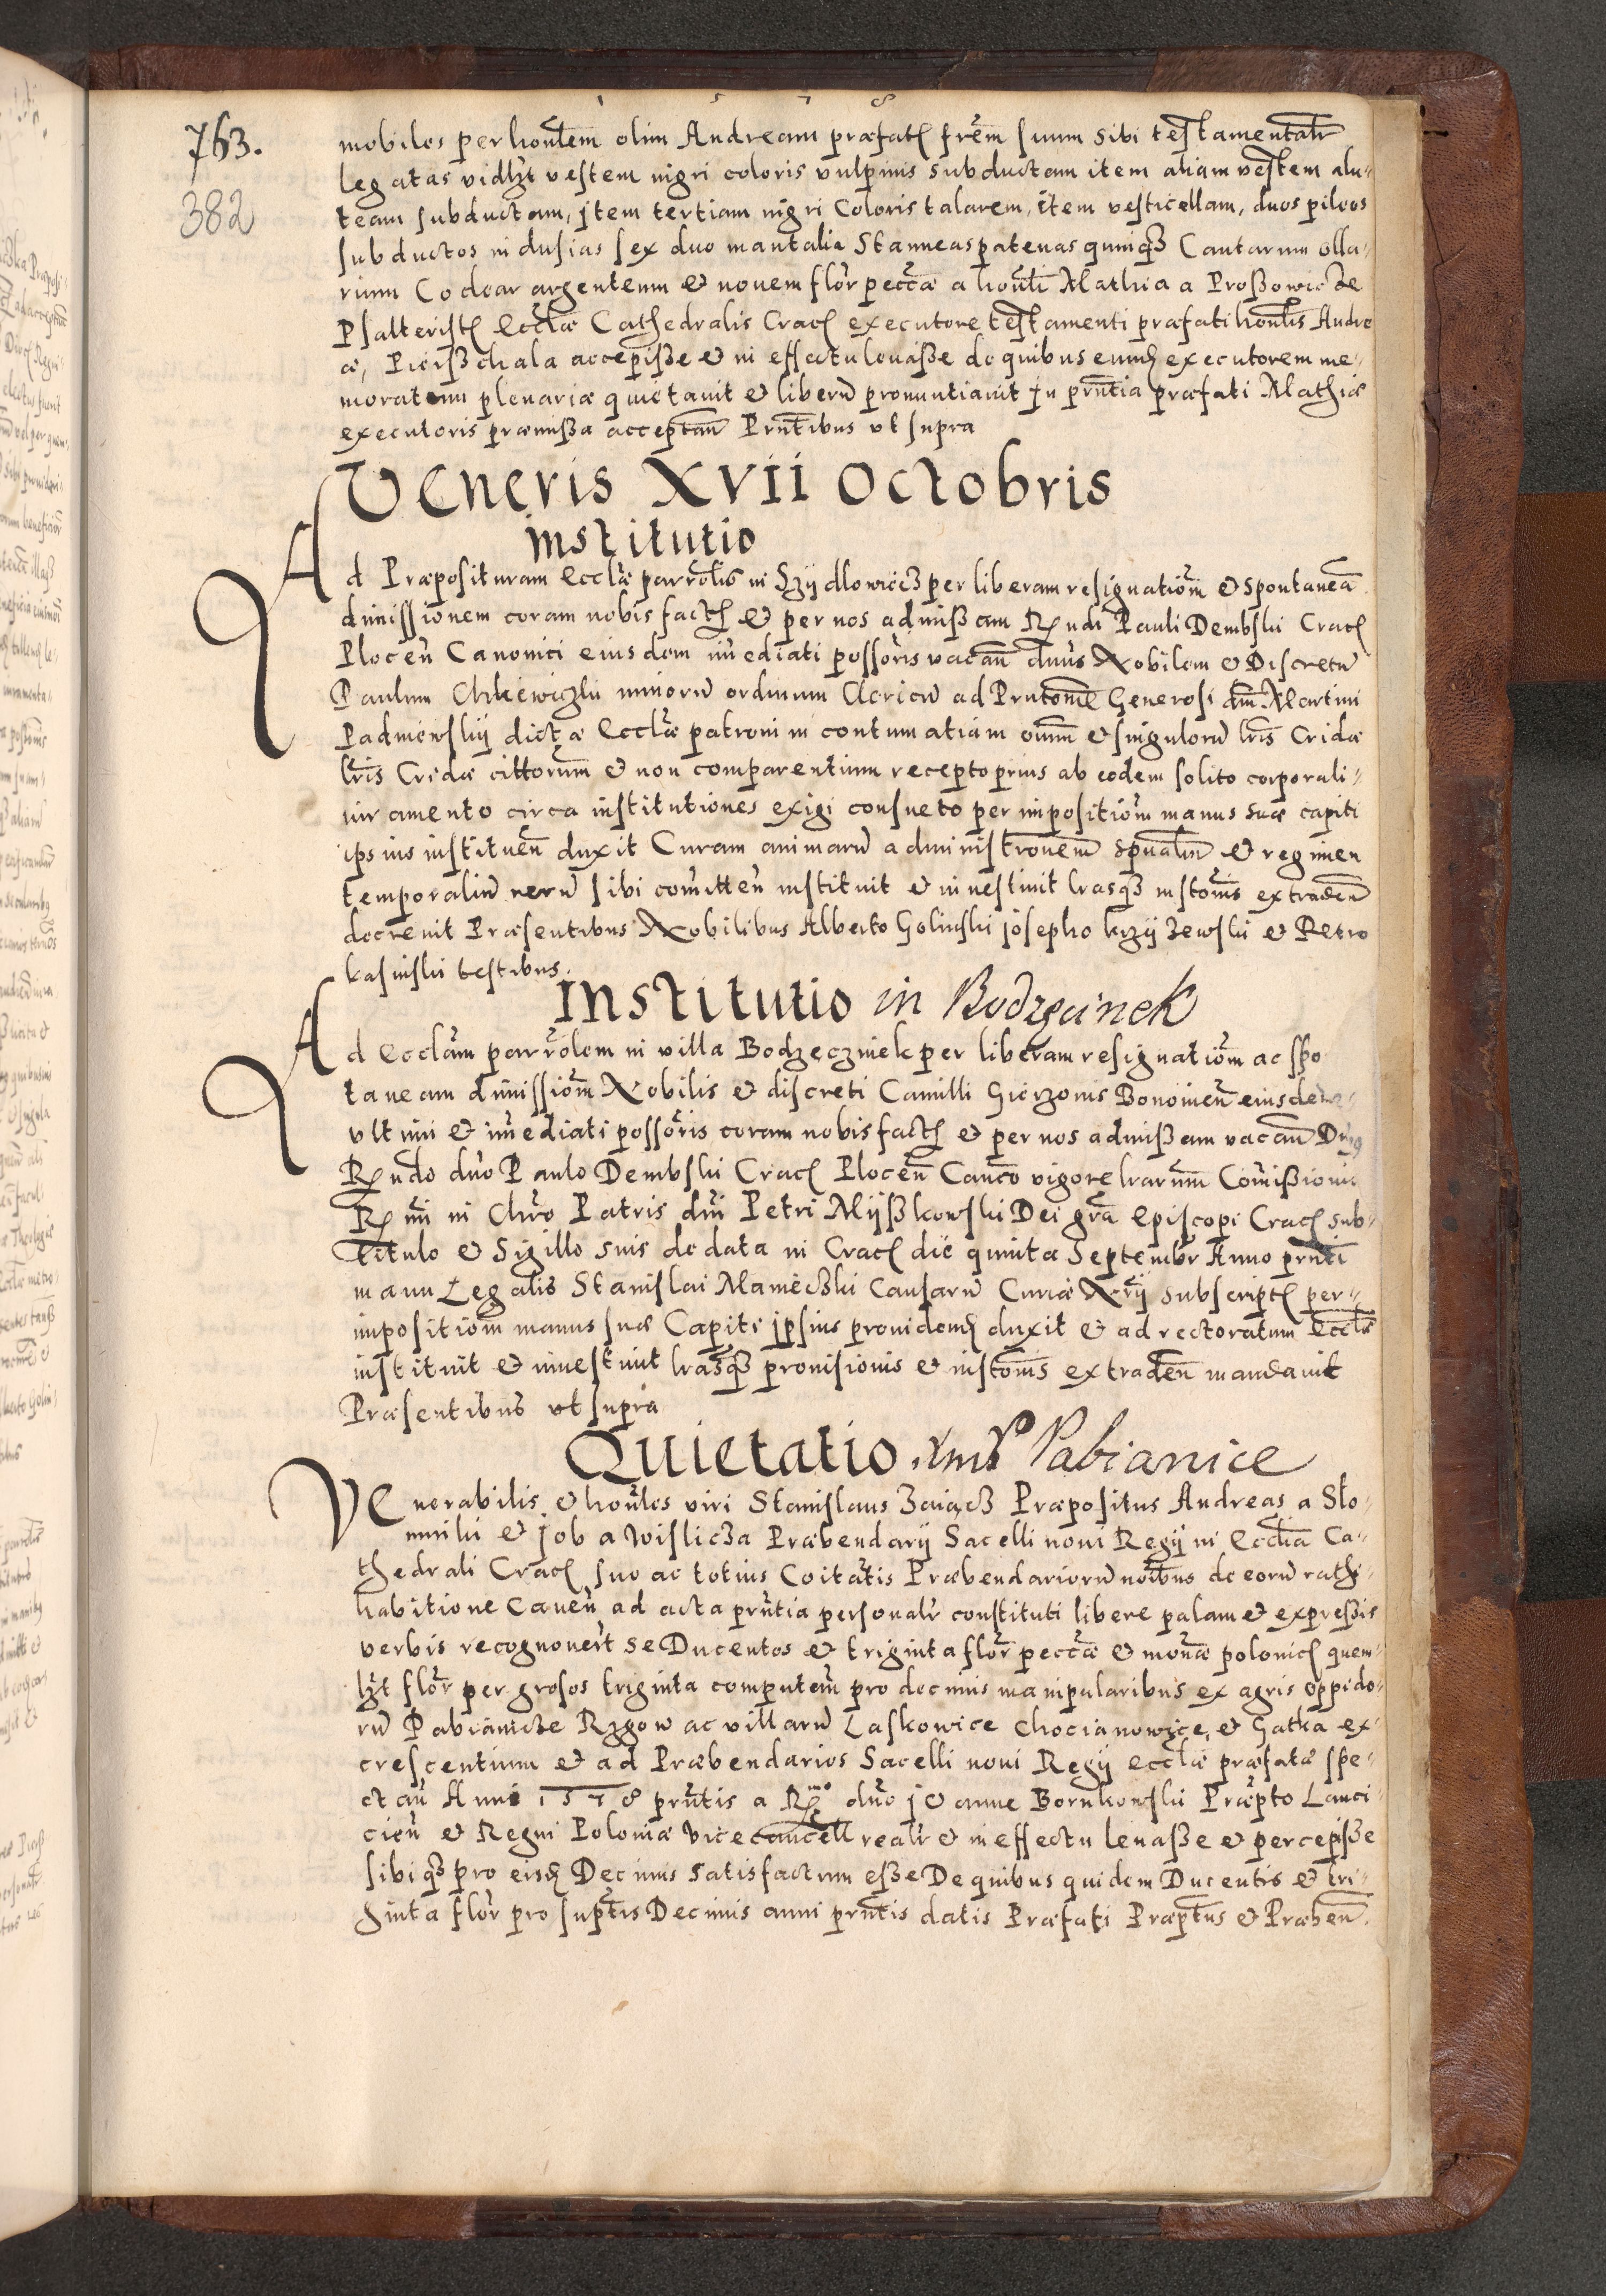 1 5 7 8
763.
382
mobiles per honlem olim Andream præfatj frem suum sibi testamentalr
legatas vidlzt vestem nigri coloris vulpinis subductam item aliam vestem alu-
team subductam, jtem tertiam nigri Coloris talarem, item vesticellam, duos pileos
subductos indusias sex duo mantalia Stanneas patenas quinqz Cantarum olla-
rium Coclear argenteum et nouem flor peccæ a honli Mathia a Proßowicze
Psalteristj Ecclæ Cathedralis Cracj executore testamenti præfati honlis Andre
æ, Pierßchala accepiße et in effectu leuaße de quibus eundj executorem me-
moratum plenariæ quietauit et liberu pronuntiauit In prntia præfati Mathiæ
executoris præmißa acceptan Prntibus vt supra
Veneris XVII Octobris
Institutio
Ad Præposituram Ecclæ parrolis in Szydlowiecz per liberam resignatiom et spontanea
dimissionem coram nobis factj et per nos admißam Rndi Pauli Dembski Cracj
Plocen Canonici eiusdem imediati possoris vacan dnus Nobilem et Discretu
Paulum minoru ordinum Clericu ad Prntome Generosi dni Martini
Padniewskij dictæ Ecclæ patroni in contumatiam omm et singuloru lris Cridæ
lris Cridæ cittorum et non comparentium recepto prius ab eodem solito corporali-
iuramento circa institutiones exigi consueto per impositiom manus suæ capiti
ipsius instituen duxit Curam animaru administronem spualiu et regimen
temporaliu reru sibi comitten instituit et inuestiuit lrasqz instonis extraden
decreuit Præsentibus Nobilibus Alberto Golinski josepho krzyzewski et Petro
kasinski testibus.
Institutio in Bodzęcinek
Ad Ecclam parrolem in villa Bodzeczinek per liberam resignatiom ac spo
taneam dimissiom Nobilis et discreti Camilli Gierzonis Bonoinen eiusdem
vltimi et imediati possoris coram nobis factj et per nos admißam vacan Dnus
Rndo dno Paulo Dembski Cracj Plocen Canco vigore lrarum Comißionis
Rmi in Chro Patris dni Petri Myßkowski Dei gra Episcopi Cracj sub-
titulo et Sigillo suis de data in Cracj die quinta Septembr Anno prnti
manu Legalis Stanislai Mameczki Causaru Curiæ Nrij subscriptj per-
impositiom manus suæ Capiti jpsius prouidendj duxit et ad rectoratum Ecclæ
instituit et inuestiuit lrasqz prouisionis et instonis extraden mandauit
Præsentibus vt supra
Quietatio Pabianice
Venerabilis et honles viri Stanislaus Zaiącz Præpositus Andreas a Slo-
mniki et job a Wislicza Præbendarij Sacelli noui Regij in Ecclia Ca-
thedrali Cracj suo ac totius Coitatis Præbendarioru noibus de eoru rathi-
habitione cauen ad acta prntia personalr constituti libere palam et expreßis
verbis recognouert se Ducentos et triginta flor peccæ et monæ polonicj quem-
lzt flor per grosos triginta computen pro decimis manipularibus ex agris oppido-
ru Pabianicze Rzgow ac villaru Laskowice Chocianowice, et Gatka ex-
crescentium et ad Præbendarios Sacelli noui Regij ecclæ præfatæ spe-
ctan Anni 1578 prntis a Rmo dno joanne Bornkowski Præpto Lanci-
cien et Regni Poloniæ Vicecancell realr et in effectu leuaße et percepiße
sibiqz pro eisdj Decimis satisfactum eße De quibus quidem Ducentis et tri-
ginta flor pro suptis Decimis anni prntis datis Præfati Præptus et Præben.